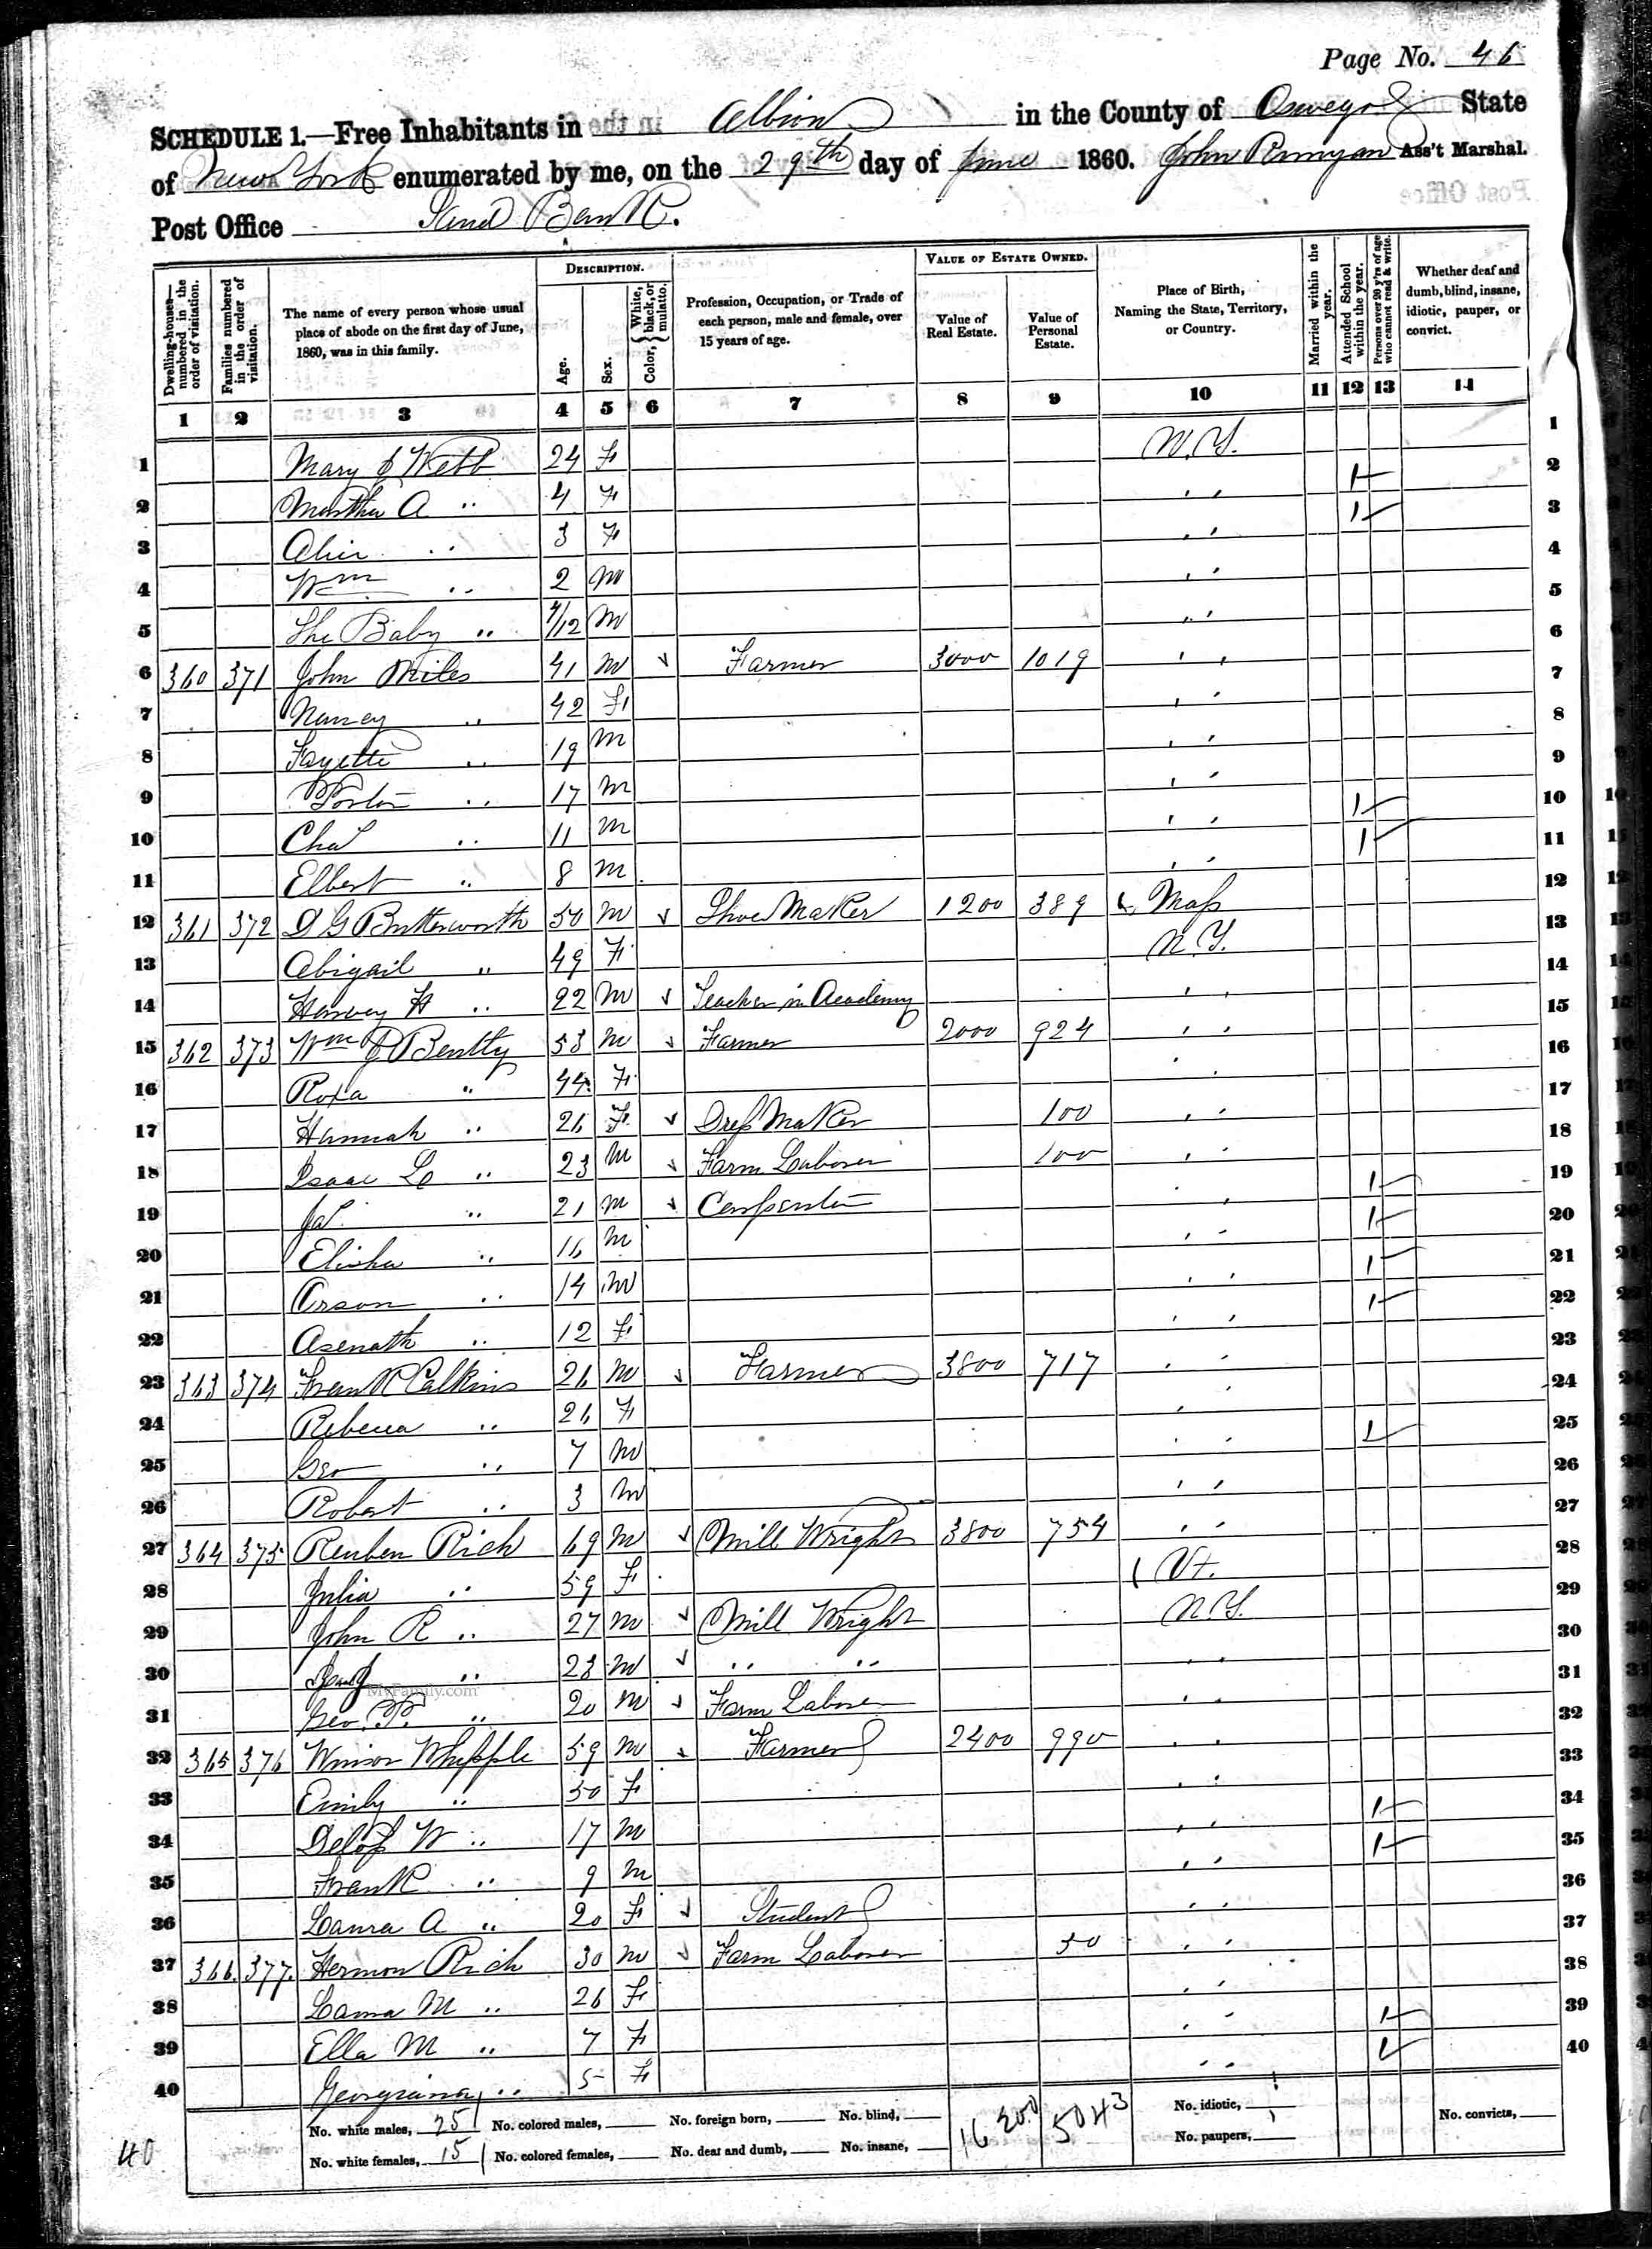 Page No. 46
SCHEDULE 1.—Free Inhabitants in Albion in the County of Oswego State
of New York enumerated by me, on the 29th day of June 1860. John Runyan Ass't Marshal.
Post Office Sand Bank.
Dwelling-houses—numbered in the order of visitation. Families numbered in the order of visitation. The name of every person whose usual place of abode on the first day of June, 1860, was in this family. DESCRIPTION. Age. Sex. Color, { White, black, or mulatto. Profession, Occupation, or Trade of each person, male and female, over 15 years of age. VALUE OF ESTATE OWNED. Value of Real Estate. Value of Personal Estate. Place of Birth, Naming the State, Territory, or Country. Married within the year. Attended School within the year. Persons over 20 y'rs of age who cannot read & write. Whether deaf and dumb, blind, insane, idiotic, pauper, or convict.
1 2 3 4 5 6 7 8 9 10 11 12 13 14
1 Mary J Webb 24 F N.Y. 1
2 Martha A " 4 F " 1 2
3 Alice " 3 F " 1 3
4 Wm " 2 M " 4
5 The Baby " 4/12 M " 5
6 360 371 John Miles 41 M Farmer 3000 1019 " 6
7 Nancy " 42 F " 7
8 Fayette " 19 M " 8
9 " 17 M " 9
10 Chas " 11 M " 1 10
11 Elbert " 8 M " 1 11
12 361 372 D G Butterworth 50 M Shoe Maker 1200 389 Mass 12
13 Abigail " 49 F N.Y. 13
14 Harvey H " 22 M Teacher in Academy " 14
15 362 373 Wm J Bently 53 M Farmer 2000 924 " 15
16 Roxa " 44 F " 16
17 Hannah " 26 F Dress Maker 100 " 17
18 Isaac L " 23 M Farm Laborer 100 " 18
19 Jas " 21 M Carpenter " 1 19
20 Elisha " 16 M " 1 20
21 Orson " 14 M " 1 21
22 Asenath " 12 F " 1 22
23 363 374 Frank Calkins 26 M Farmer 3800 717 " 23
24 Rebecca " 26 F " 24
25 Geo " 7 M " 1 25
26 Robert " 3 M " 26
27 364 375 Reuben Rich 69 M Mill Wright 3800 754 " 27
28 Julia " 59 F Vt. 28
29 John R " 27 M Mill Wright N.Y. 29
30 " 23 M " " " 30
MyFamily.com
31 Geo. P. " 20 M Farm Laborer " 31
32 365 376 Winsor Whipple 59 M Farmer 2400 990 " 32
33 Emily " 50 F " 33
34 Delos W " 17 M " 1 34
35 Frank " 9 M " 1 35
36 Laura A " 20 F Student " 36
37 366. 377. Hermon Rich 30 M Farm Laborer 50 " 37
38 Laura M " 26 F " 38
39 Ella M " 7 F " 1 39
40 Georgiana " 5 F " 1 40
No. white males, 25 No. colored males, No. foreign born, No. blind, 16200 5043 No. idiotic, No. convicts,
40 No. white females, 15 No. colored females, No. deaf and dumb, No. insane, No. paupers,